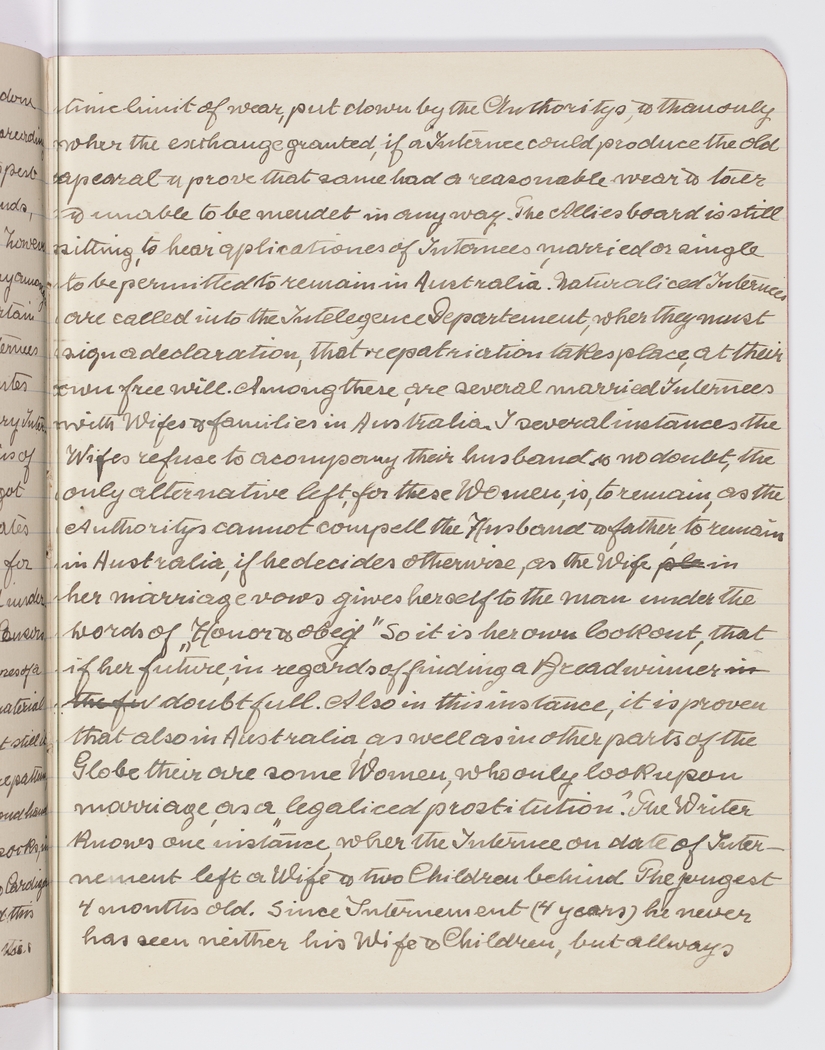 time limit of wear, put down by the Authoritys, & than only
wher the exchange granted, if a Internee could produce the old
apearal & prove that same had a reasonable wear & toer
& unable to be mendet in any way. The Allies board is still
sitting, to hear aplicationes of Internees, married or single
to be permitted to remain in Australia. Naturaliced Internees
are called into the Intelegence Departement, wher they must
sign a declaration, that repatriation takes place, at their
own free will. Among these, are several married Internees
with Wifes & families in Australia. I several instances the
Wifes refuse to acompany their husband & no doubt, the
only alternative left, for these Women, is, to remain, as the
Authoritys cannot compell the Husband & father, to remain
in Australia, if he decides otherwise, as the Wife in
her marriage vows gives herself to the man under the
words of „Honor & obeij" So it is her own lookout, that
if her future, in regards of finding a Breadwinner in
the fu doubtfull. Also in this instance, it is proven
that also in Australia, as well as in other parts of the
Globe their are some Women, who only look upon
marriage, as a „legaliced prostitution". The Writer
knows one instance, wher the Internee on date of Inter-
nement left a Wife & two Children behind The jungest
4 months old. Since Internement (4 years) he never
has seen neither his Wife & Children, but allways
dorn
pest
nds,
howev
rtain
ternees
ates
ry Inter
is of
got
ates
for
under
res of a
aterial
t still
repatri
ond han
socks,
Cardig
d this